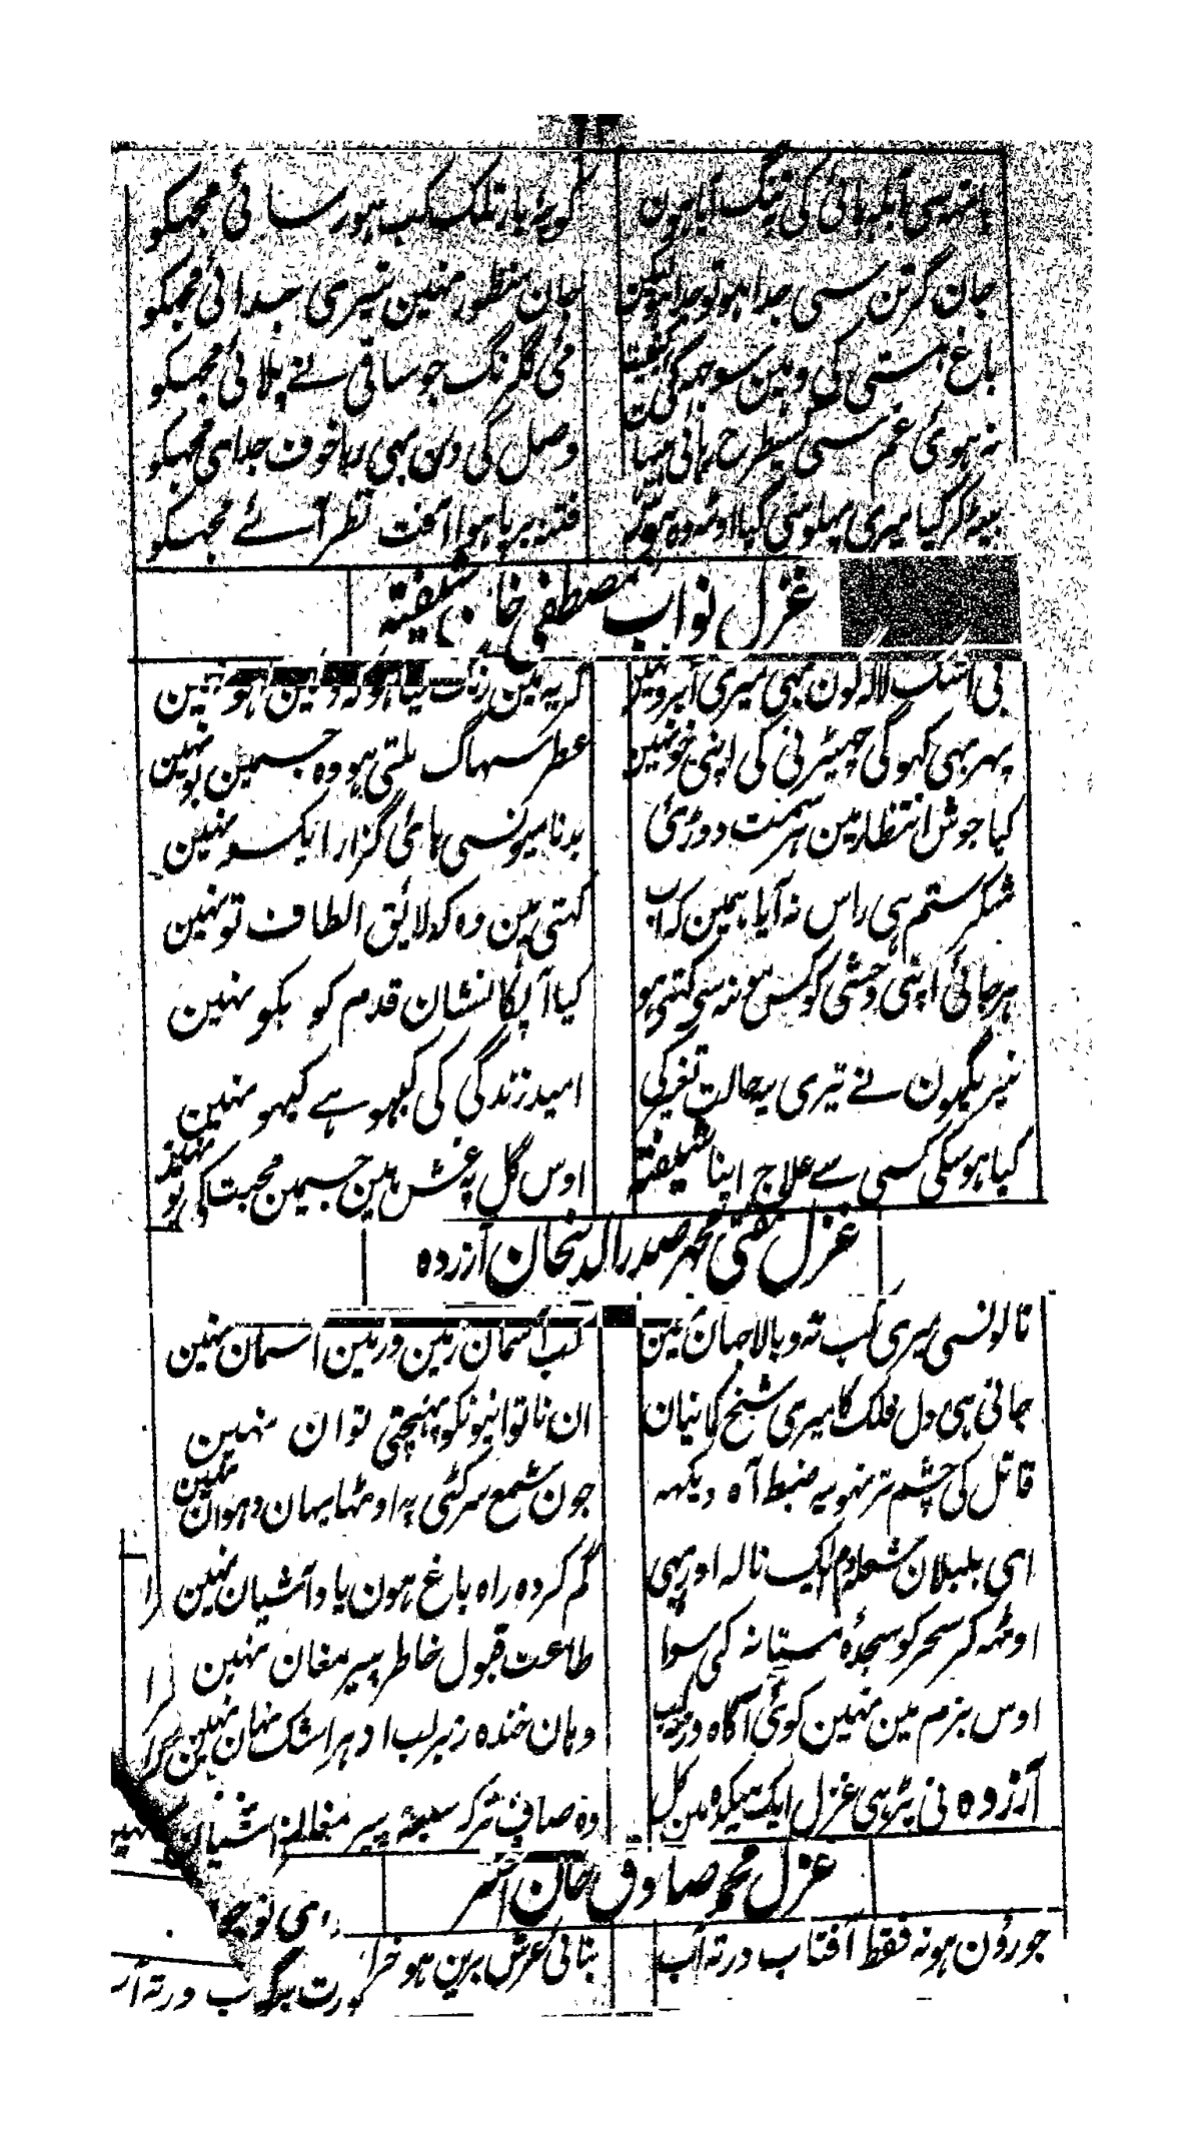 کوئے یار تلک کب ہو رسائی مجہکو
جان کر تن سی جدا ہو تو جدا ہو لیکن جان منظور نہین تیری جدائی مجہکو
باغ ہستی کی وہین سوجہ گی کیفیت می گلرنگ جو ساقی نے پلائی مجہکو
نہ ہوی غم سی کسیطرح رہائی وصل کی دن بہی رہا خوف جدای مجہکو
بیٹہکر گیا میری پہلو سی فتنہ برپا ہوا آفت نظر آئے مجہکو
غزل نواب مصطفی خان شیفتہ
بی اشک لالہ گون بہی میری آبرو نہین گریہ مین رنگ کیا ہو کہ دل مین لہو نہین
پہر بہی کہو گی چہیڑنی کی اپنی خو نہین عطر سہاگ ملتی ہو وہ جسمین بو نہین
کیا جوش انتظار مین ہر سمت دوڑئی بدنامیونسی ہائی گزار ایکسو نہین
شکر ستم ہی راس نہ آیا ہمین کہ اب کہتی ہین وہ کہ لایق الطاف تو نہین
ہرجائی اپنی وحشی کو کس مونہ سی کہتی ہو کیا آپکا نشان قدم کو بکو نہین
نیرنگیون نے تیری یہ حالت تغیر کی امید زندگی کی کبہو ہے کبہو نہین
کیا ہو سکی کسی سے علاج اپنا شیفتہ اوس گل پہ غش ہین جسمین محبت کی بو نہین
غزل مفتی محمد صدر الدینخان آزردہ
نالونسی میری کب تہ و بالا جہان نہین کب آسمان زمین و زمین آسمان نہین
جاتی ہی دل فلک کا میری ان ناتوانیونکو پہنچتی توان نہین
قاتل کی چشم تر نہو یہ ضبط آہ دیکہہ جون شمع سر کٹی پہ اوٹہا یہان دہوان نہین
ای بلبلان شعلہ دم ایک نالہ اور بہی گم کردہ راہ باغ ہون یاد آشیان نہین
اوٹہہ کر سحر کو سجدۂ مستانہ کی سوا طاعت قبول خاطر پیر مغان نہین
اوس بزم مین نہین کوئی آگاہ ورنہ کب وہان خندہ زیر لب ادہر اشک نہان نہین
آزردہ نی پڑہی غزل ایک میکدہ مین کل وہ صاف تر کہ سینہ پیر مغان
غزل محمد صادق خان اختر
جو رؤن ہو نہ فقط آفتاب در تہ آب بنائی عرش برین ہو خراب در تہ آب